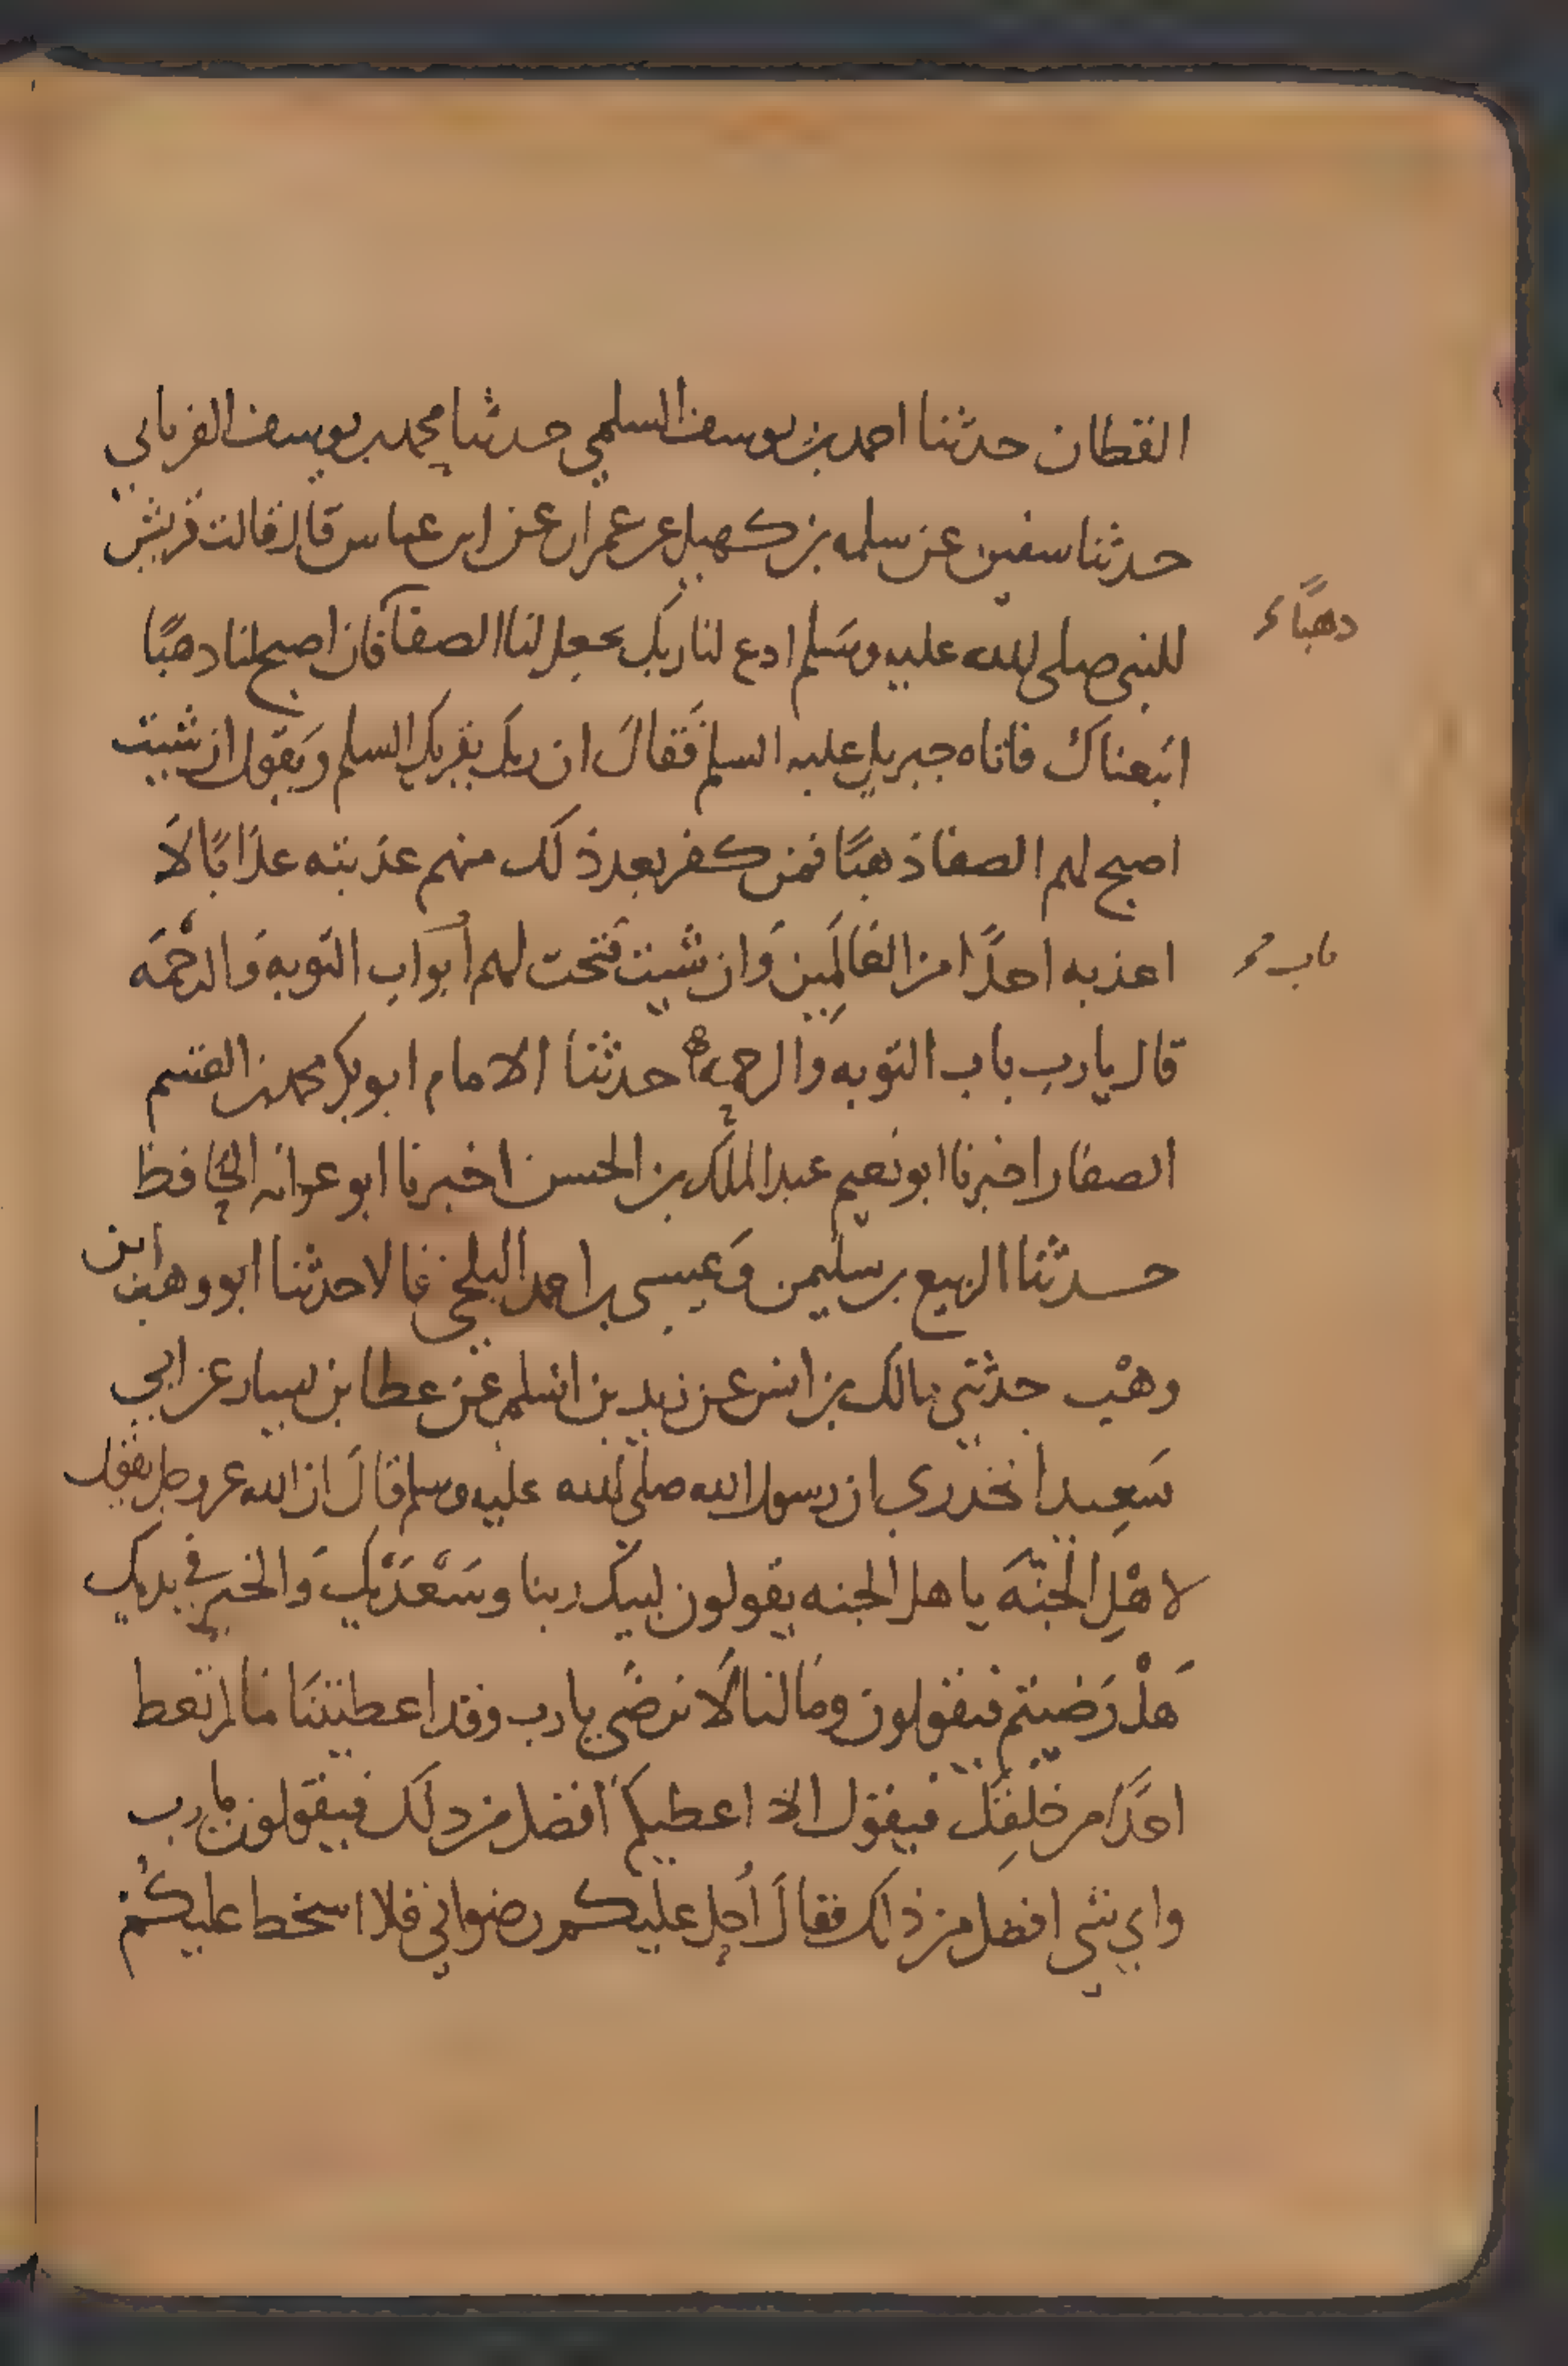 القطان حدثنا احمد بن يوسف السلمي حدثنا محمد بن يوسف الفريابي
حدثنا سفين عن سلمه بن كهيل عن عمران عن ابن عباس قال قالت قريش
للنبي صلى الله عليه وسَلم ادع لنا ربك يجعل لنا الصفا فان اصبح لنا ذهبًا
دهبًا
اتبعناك فاتاه جبريل عليه السلم فَقالَ ان ربك يقريك السلم ويَقول ان شيت
اصبح لهم الصفا ذهبًا فمن كفر بعد ذلك منهم عذبته عذابًا لَا
اعذبه احدًا من العَالَمِين وَان شيت فَتحت لهم ابواب التوبه وَالرحْمَه
باب
قال يا رب باب التوبه والرحمه حدثنا الامام ابو بكر محمد بن القسم
الصفار اخبرنا ابو نعيم عبد الملك بن الحسن اخبرنا ابو عوانه الحافظ
حدثنا الربيع بن سليمن وَعيسى بن احمد البلخي قالا حدثنا ابو وهب ابن
وهْب حدثني مالك بن انس عن زيد بن اسلم عن عطا بن يسار عن ابي
سَعِيد الخدري ان رسول الله صلى الله عليه وسلم قالَ ان الله عز وجل يقول
لاهْلِ الجَنَّهَ يا هل الجنه يقولون لبيك ربنا وسَعْدَيْكَ وَالخير في يديك
هَلْ رَضيتم فيقولون ومَا لنا لَا نرضَى يا رب وقد اعطيتنَا مَا لم تعط
احَدًا من خَلْقِكَ فيقول الا اعطيكم افضل من ذلك فيقولون يا رب
واي شي افضل من ذلك فقالَ اُحِل عليكم رضواني فلا اسخط عليكُم